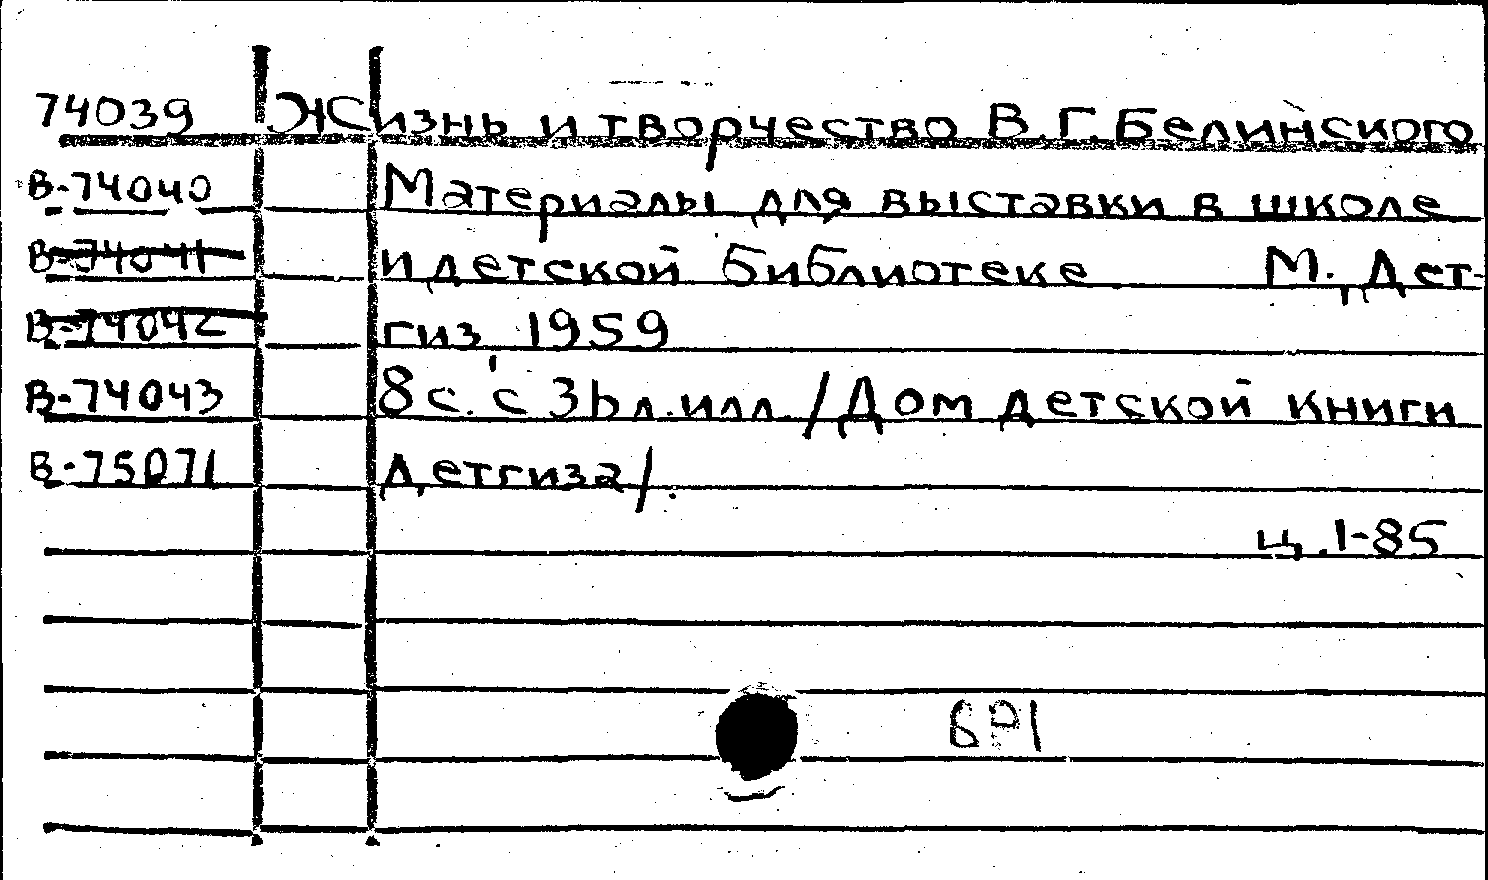 74039 Жизнь и творчество В.Г.Белинского
В-74040 Материалы для выставки в школе
В-74041 и детской библиотеке М., Дет-
В-74042 гиз, 1959
В-74043 8 с. с 36 л. илл. /Дом детской книги
В-75071 Детгиза/.
ц.1-85
8Р1